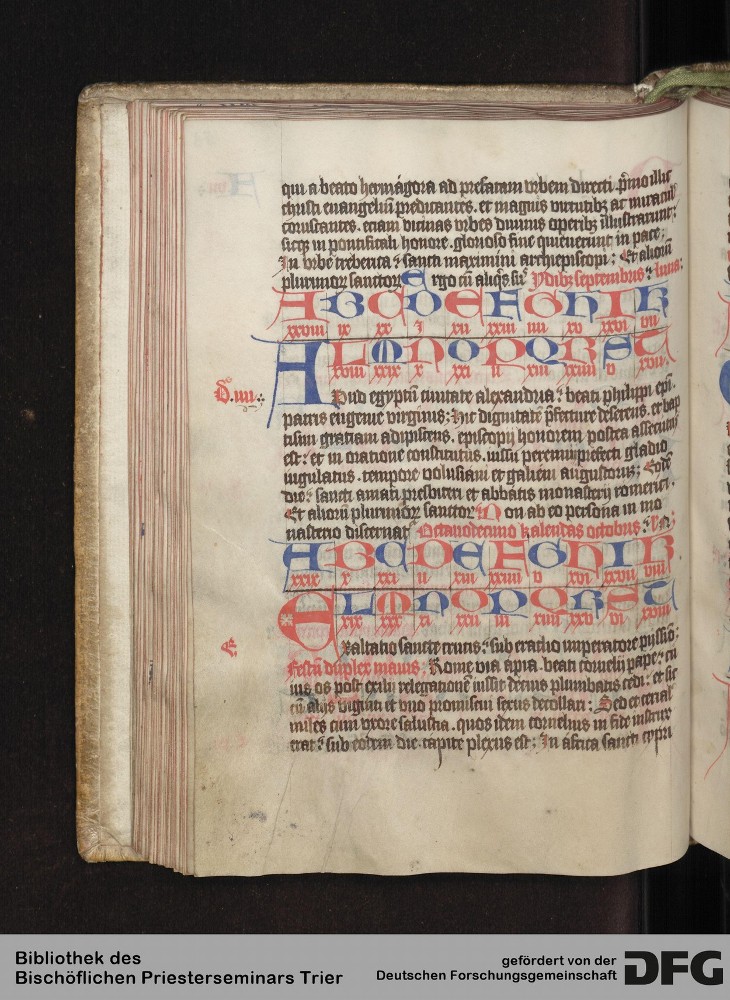 qui a beato hermagora ad prefatam vrbem directi. pͥmo illic
christi euangeliū predicantes. et magnis virtutibꝫ ac miraculis
coruscantes. etiam vicinas vrbes diuinis operibꝫ illustrarunt:
sicqꝫ in pontificali honore. glorioso fine quieuerunt in pace:
In vrbe treberica: sancti maximini archiepiscopi: Et alioꝝ
plurimoꝝ sanctoꝝ Ergo cū Ydibꝫ septembris: luna:
A B C D E F G H I K
xxviii ix xx i xii xxiii iiii xv xxvi vii
L M N O P Q R S T
xviii xxix x xxi ii xiii xxiiii v xvii
D. iiii.
Apud egyptū ciuitate alexandria: beati philippi epī.
patris eugenie virginis: hic dignitatē p̄fecture deserens. et bap
tismi gratiam adipiscens. episcopij honorem postea assecutus
est: et in oratione constitutus. iussu perennij prefecti gladio
iugulatus. tempore volusiani et galieni augustorum: Eodē
die: sancti amati presbiteri et abbatis monasterij romerici.
Et alioꝝ plurimoꝝ sanctoꝝ Non ab eo persona in mo
nasterio discernat Octauodecimo kalendas octobris:
A B C D E F G H I K
xxix x xxi ii xiii xxiiii v xvi xxvii viii
L M N O P Q R S T
xix xxx xi xxii iii xiiii xxv vi xviii
Exaltatio sancte crucis: sub eraclio imperatore pijssīo:
Festū duplex maius: Rome via apia. beati cornelij pape: cu
ius os post exilij relegationē iussit decius plumbatis cedi: et sic
cū alijs viginti et vno promiscui sexus decollari: Sed et cerialis
miles cum vxore salustia. quos idem cornelius in fide instrux
erat: sub eodem die. capite plexus est: In africa sancti cypri
Bibliothek des
Bischöflichen Priesterseminars Trier
gefördert von der
Deutschen Forschungsgemeinschaft
DFG